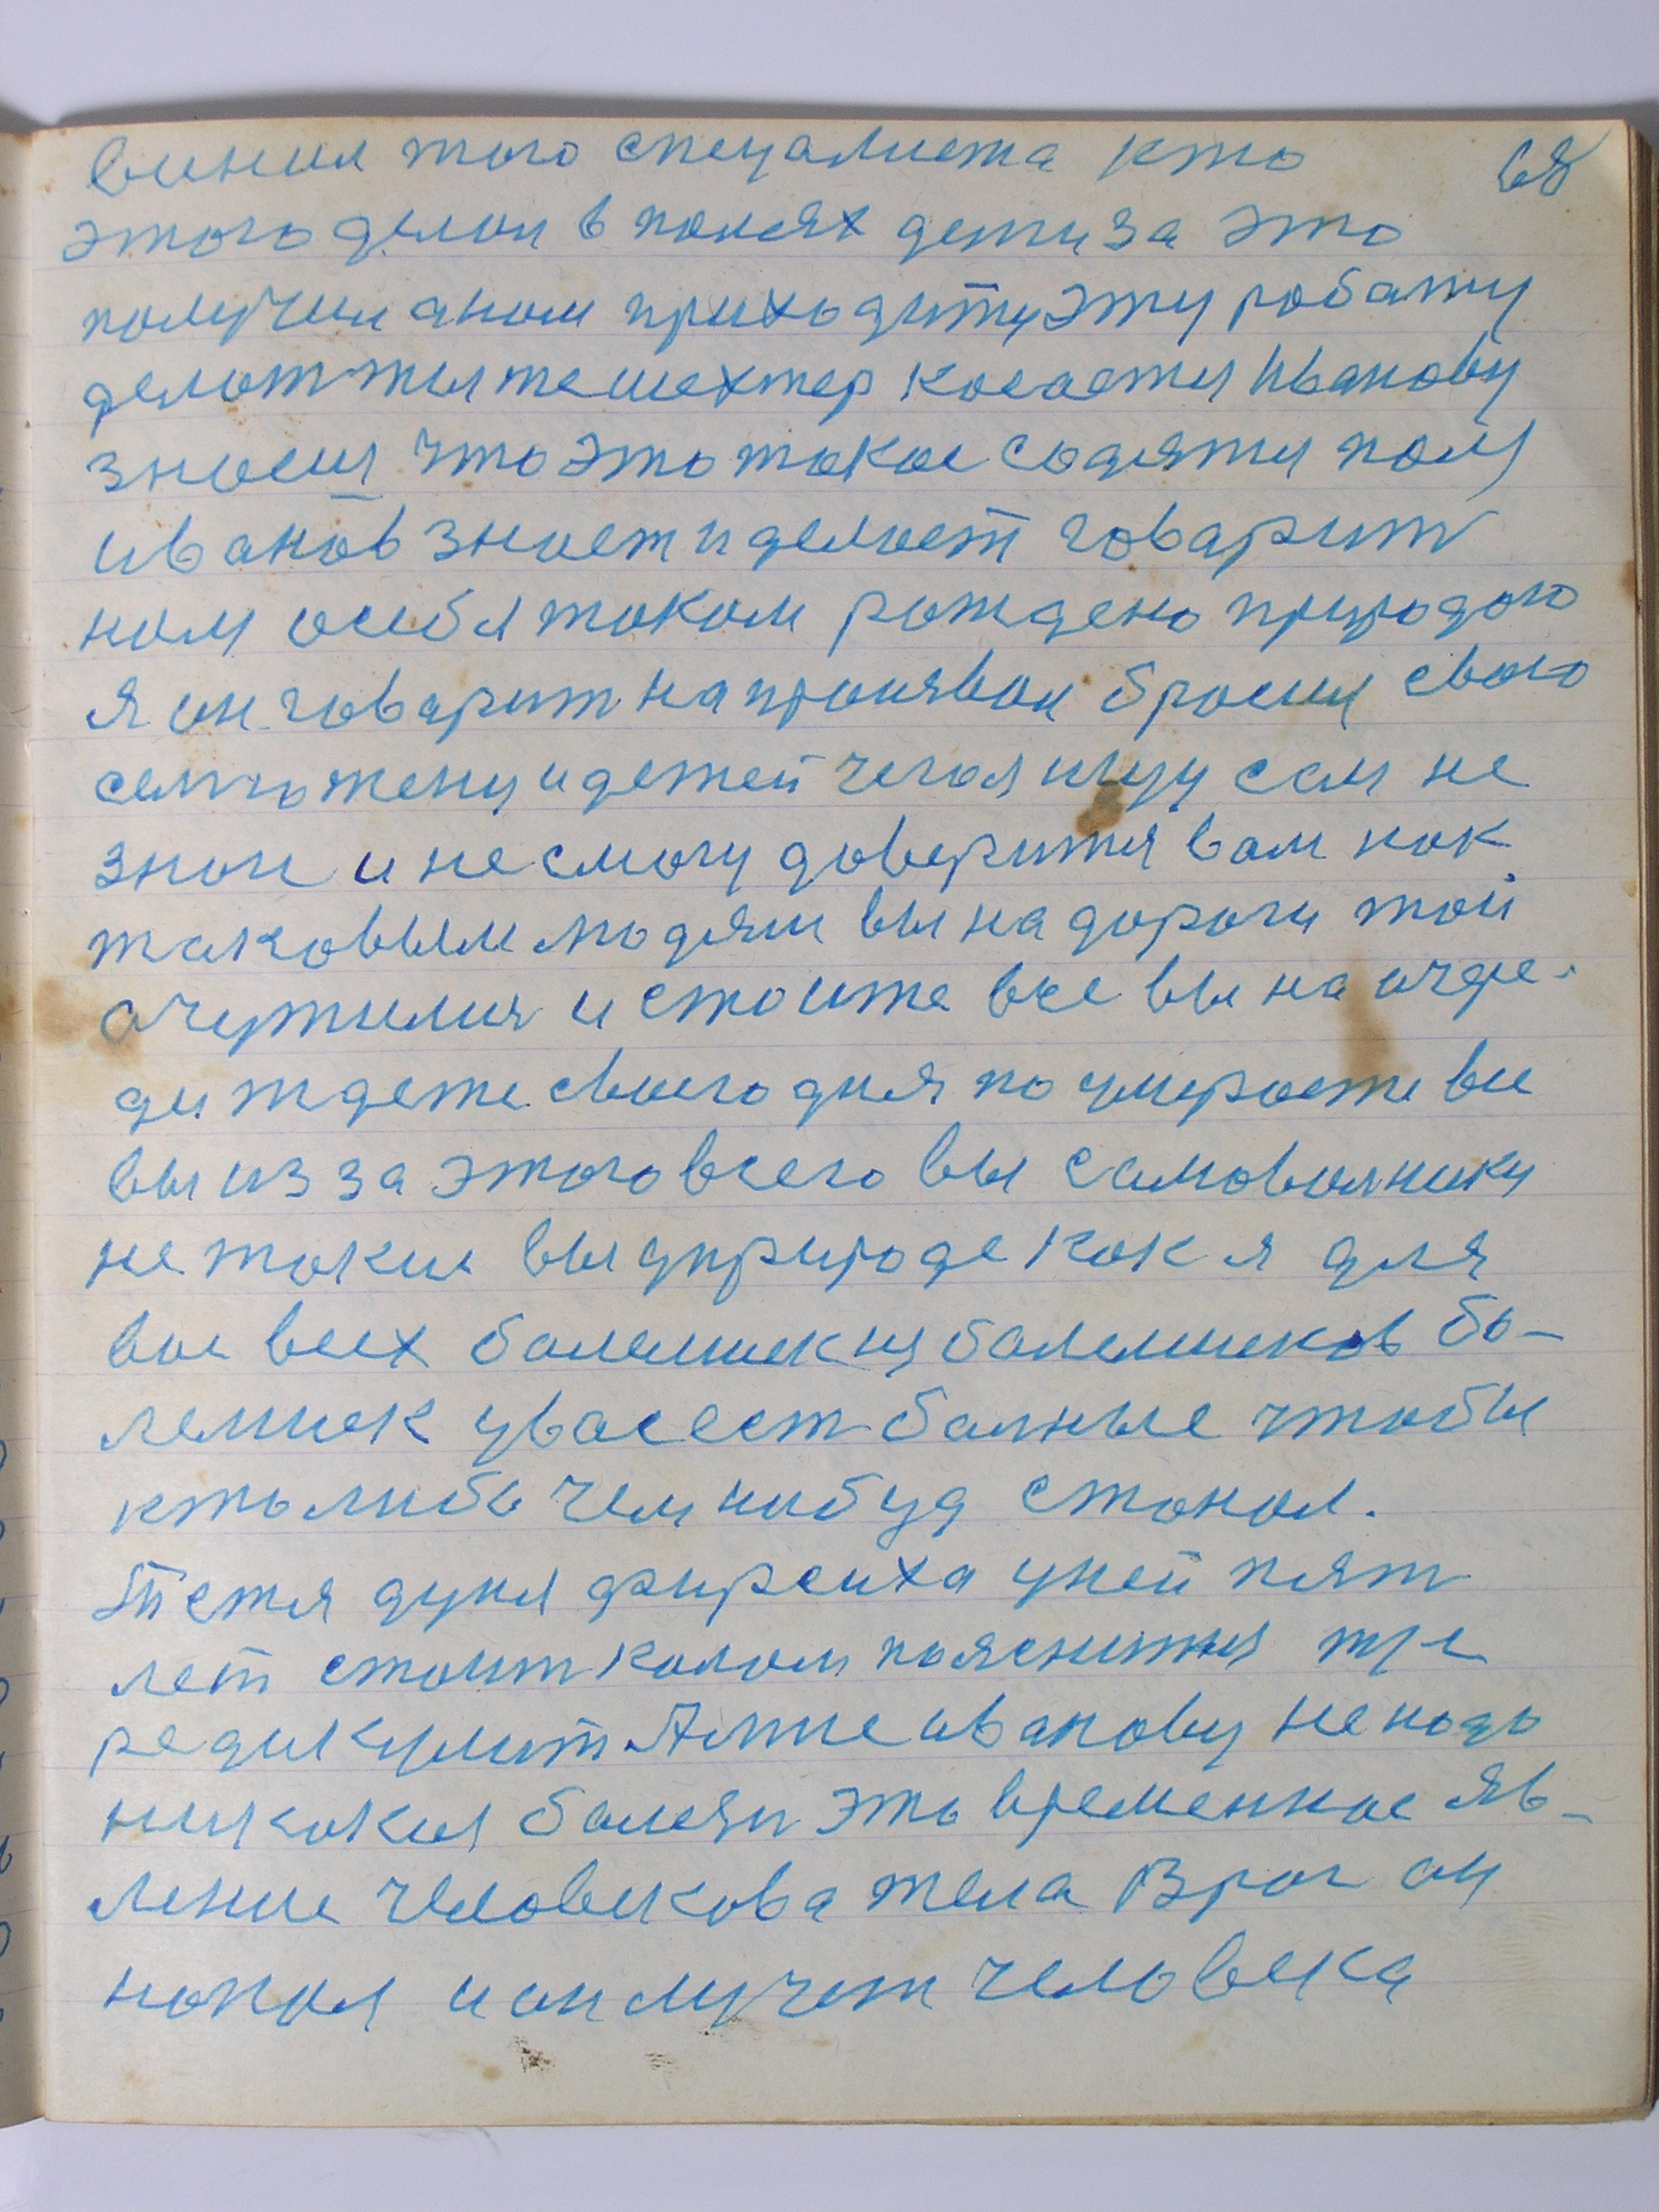 винил того спецалиста кто 68
этого делал в полях дети за это
получил а нам приходитця эту работу
делат ты те шехтер косается Иванову
знаеш что это такое садяти полу
иванов знает и делает говарит
нам особа таком рождено природою
Я он говарит на произвол бросил свою
семю жену и детей чего я ищу сам не
знаю и не смогу доверится вам как
таковым людям вы на дороги той
очутилия и стоите все вы на очере-
ди ждете своего дня по умираете все
вы из за этого всего вы самоволники
не такие вы уприроде как я для
вас всех болельшик из болельшиков бо-
лелшик увас ест балные чтобы
кто либо чем нибуд стонал.
Тетя дуня фирсиха уней пят
лет стоит колом пояснитця тре
редикулит А мне иванову не надо
никокая балезн это временное яв-
ление человекова тела Враг он
напал и он мучет человека